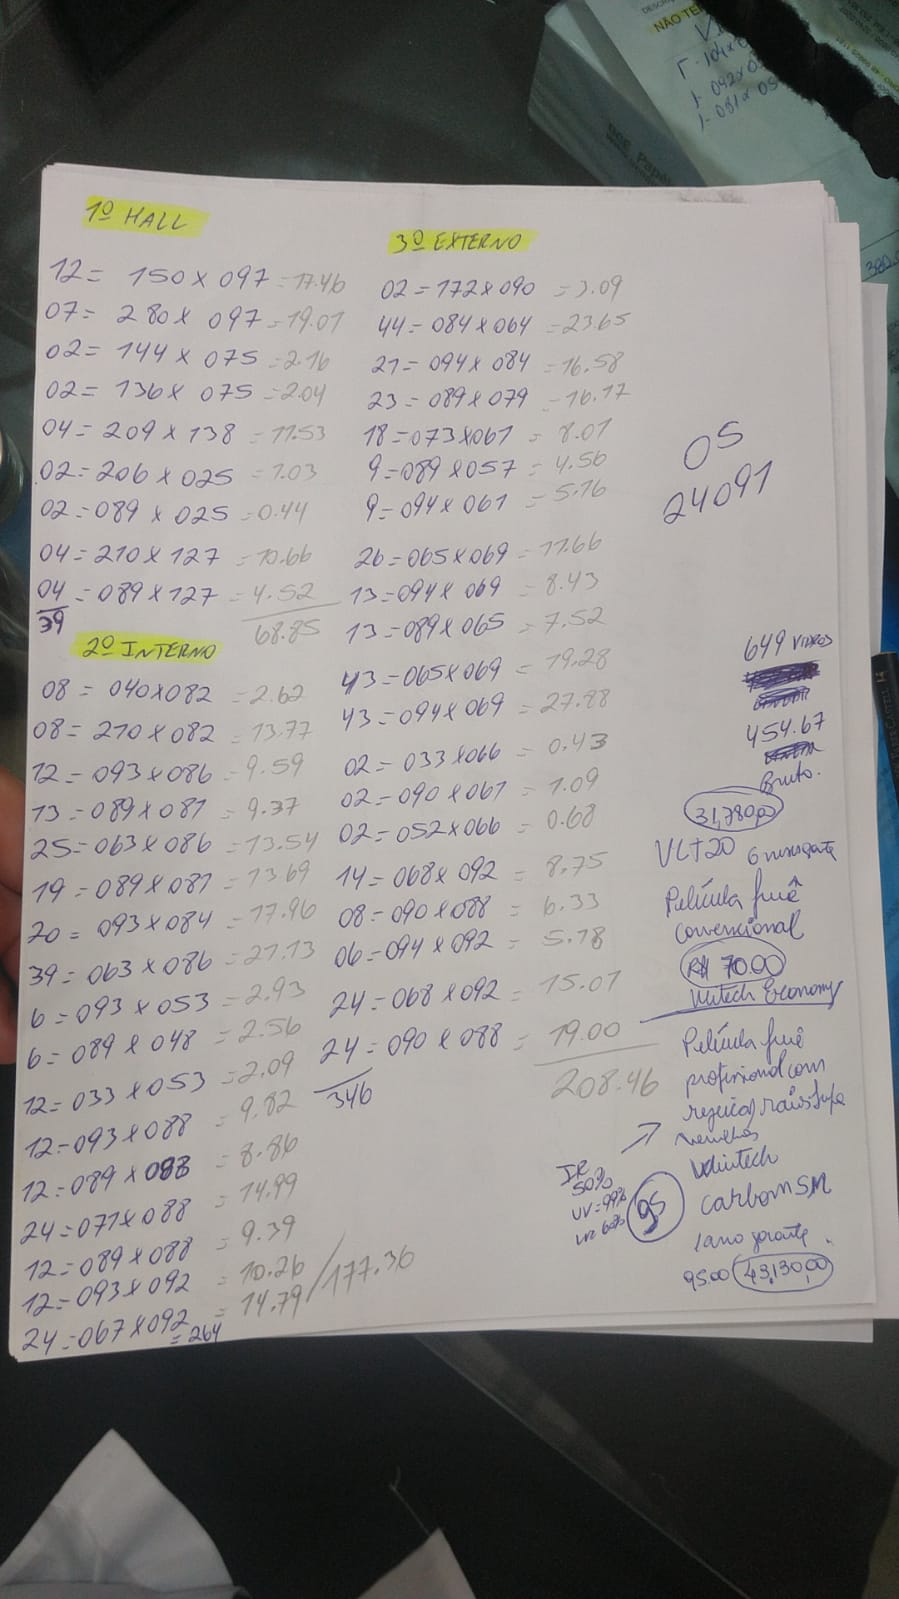 1º HALL
12= 150 x 097 =17.46
07= 280 x 097 =19.01
02= 144 x 075 =2.16
02= 136 x 075 =2.04
04= 209 x 138 =11.53
02=206 x 025 =1.03
02=089 x 025 =0.44
04=210 x 127 =10.66
04=089 x 127 =4.52
39
68.85
2º INTERNO
08= 040x082 =2.62
08= 210 x 082 =13.77
12=093 x 086 =9.59
13=089x081 =9.37
25=063x086 =13.54
19=089x081 =13.69
20=093x084
39=063 x 086
6=093 x 053 =2.93
6=089 x 048 =2.56
12=033 x 053 =2.09
12=093x088 =9.82
12=089x083 =8.86
24=071x088 =14.99
12=089x088 =9.39
12=093x092 =10.26
24=067x092 =14.79/177.36
=264
3º EXTERNO
02=172x090 =3.09
44=084x064 =23.65
21=094x084 =16.58
23=089x079 =16.17
18=073x061 =8.01
9=089x057 =4.56
9=094x061 =5.16
26=065x069 =11.66
13=094x069 =8.43
13=089x065 =7.52
43=065x069 =19.28
43=094x069 =27.88
02=033x066 =0.43
02=090x061 =1.09
02=052x066 =0.68
14=068x092 =8.75
08=090x088 =6.33
06=094x092 =5.18
24=068x092 =15.01
24=090x088 =19.00
346
208.46
OS
24091
649 VIDROS
454.67
Bruto.
31,780,00
VLT20
Película fumê
convencional
R$ 70.00
Economy
Película fumê
profissional com
IR
50%
UV=99%
95
carbom SM
1 ano garante
95.00 43,130,00
NÃO TE